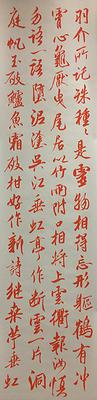 羽介所託殊種種是靈物相得忘形軀鶴有冲
霄心龜厭曳尾居以竹兩附口相將上雲衢報汝慎
勿語一語墮泥塗吳江垂虹亭作斷雲一片洞
庭帆玉破鱸魚霜破柑好作新詩繼桑苧垂虹